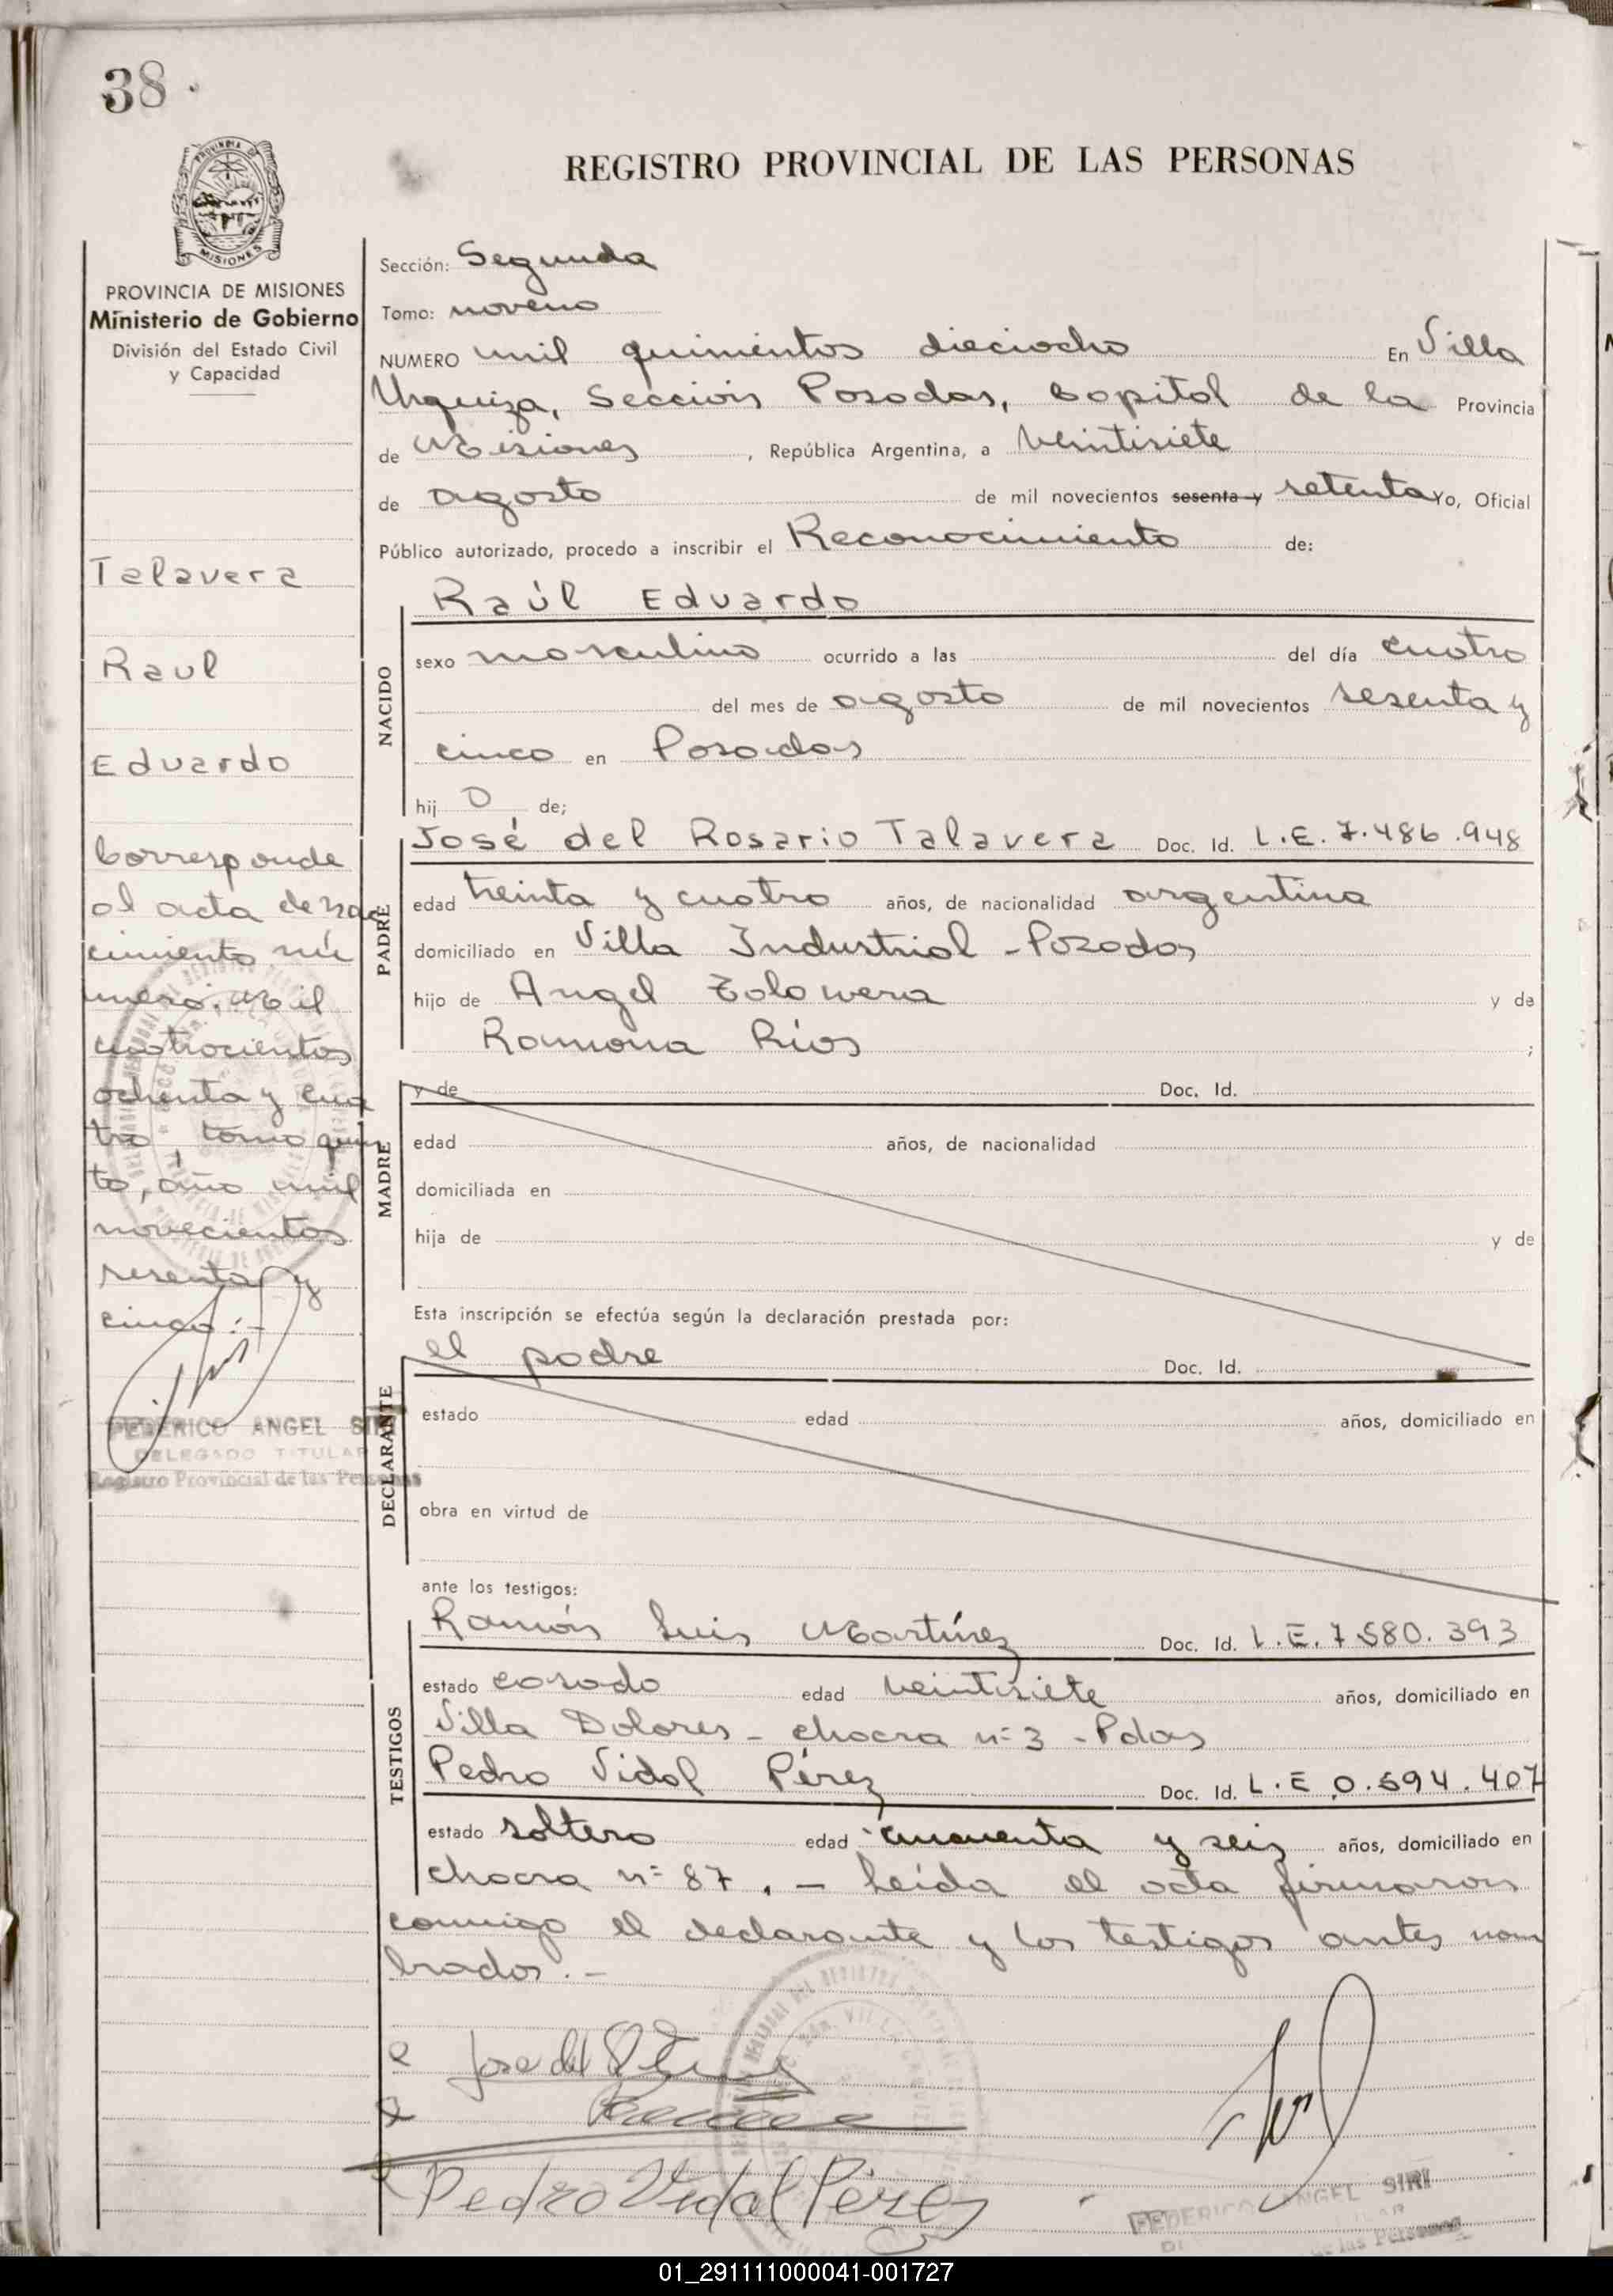 38.
REGISTRO PROVINCIAL DE LAS PERSONAS
PROVINCIA DE MISIONES
PROVINCIA DE MISIONES
Ministerio de Gobierno
División del Estado Civil
y Capacidad
Talavera
Raul
Eduardo
Corresponde
al acta de na
cimiento nú
mero: Mil
cuatrocientos
ochenta y cua
tro tomo quin
to, año mil
novecientos
sesenta y
cinco:-
FEDERICO ANGEL SIRI
DELEGADO TITULAR
Registro Provincial de las Personas
Sección: Segunda
Tomo: noveno
NUMERO mil quinientos dieciocho En Villa
Urquiza, Sección Posadas, Capital de la Provincia
de Misiones, República Argentina, a veintisiete
de agosto de mil novecientos sesenta y setenta Yo, Oficial
Público autorizado, procedo a inscribir el Reconocimiento de:
NACIDO
Raúl Eduardo
sexo masculino ocurrido a las del día cuatro
del mes de agosto de mil novecientos sesenta y
cinco en Posadas
hij o de;
PADRE
José del Rosario Talavera Doc. Id. L.E. 7.486.948
edad treinta y cuatro años, de nacionalidad argentina
domiciliado en Villa Industrial - Posadas
hijo de Angel y de
Ramona Ríos ;
MADRE
y de Doc. Id.
edad años, de nacionalidad
domiciliada en
hija de y de
Esta inscripción se efectúa según la declaración prestada por:
DECLARANTE
el padre Doc. Id.
estado edad años, domiciliado en
obra en virtud de
ante los testigos:
TESTIGOS
Ramón Luis Martínez Doc. Id. L.E. 7.580.393
estado casado edad veintisiete años, domiciliado en
Villa Dolores - chacra nº 3 - Pdas
Pedro Vidal Pérez Doc. Id. L.E 0.594.407
estado soltero edad cincuenta y seis años, domiciliado en
chacra nº 87. - Leída el acta firmaron
conmigo el declarante y los testigos antes nom
brados. -
Jose del
Pedro Vidal Pérez
FEDERICO ANGEL SIRI
01_291111000041-001727